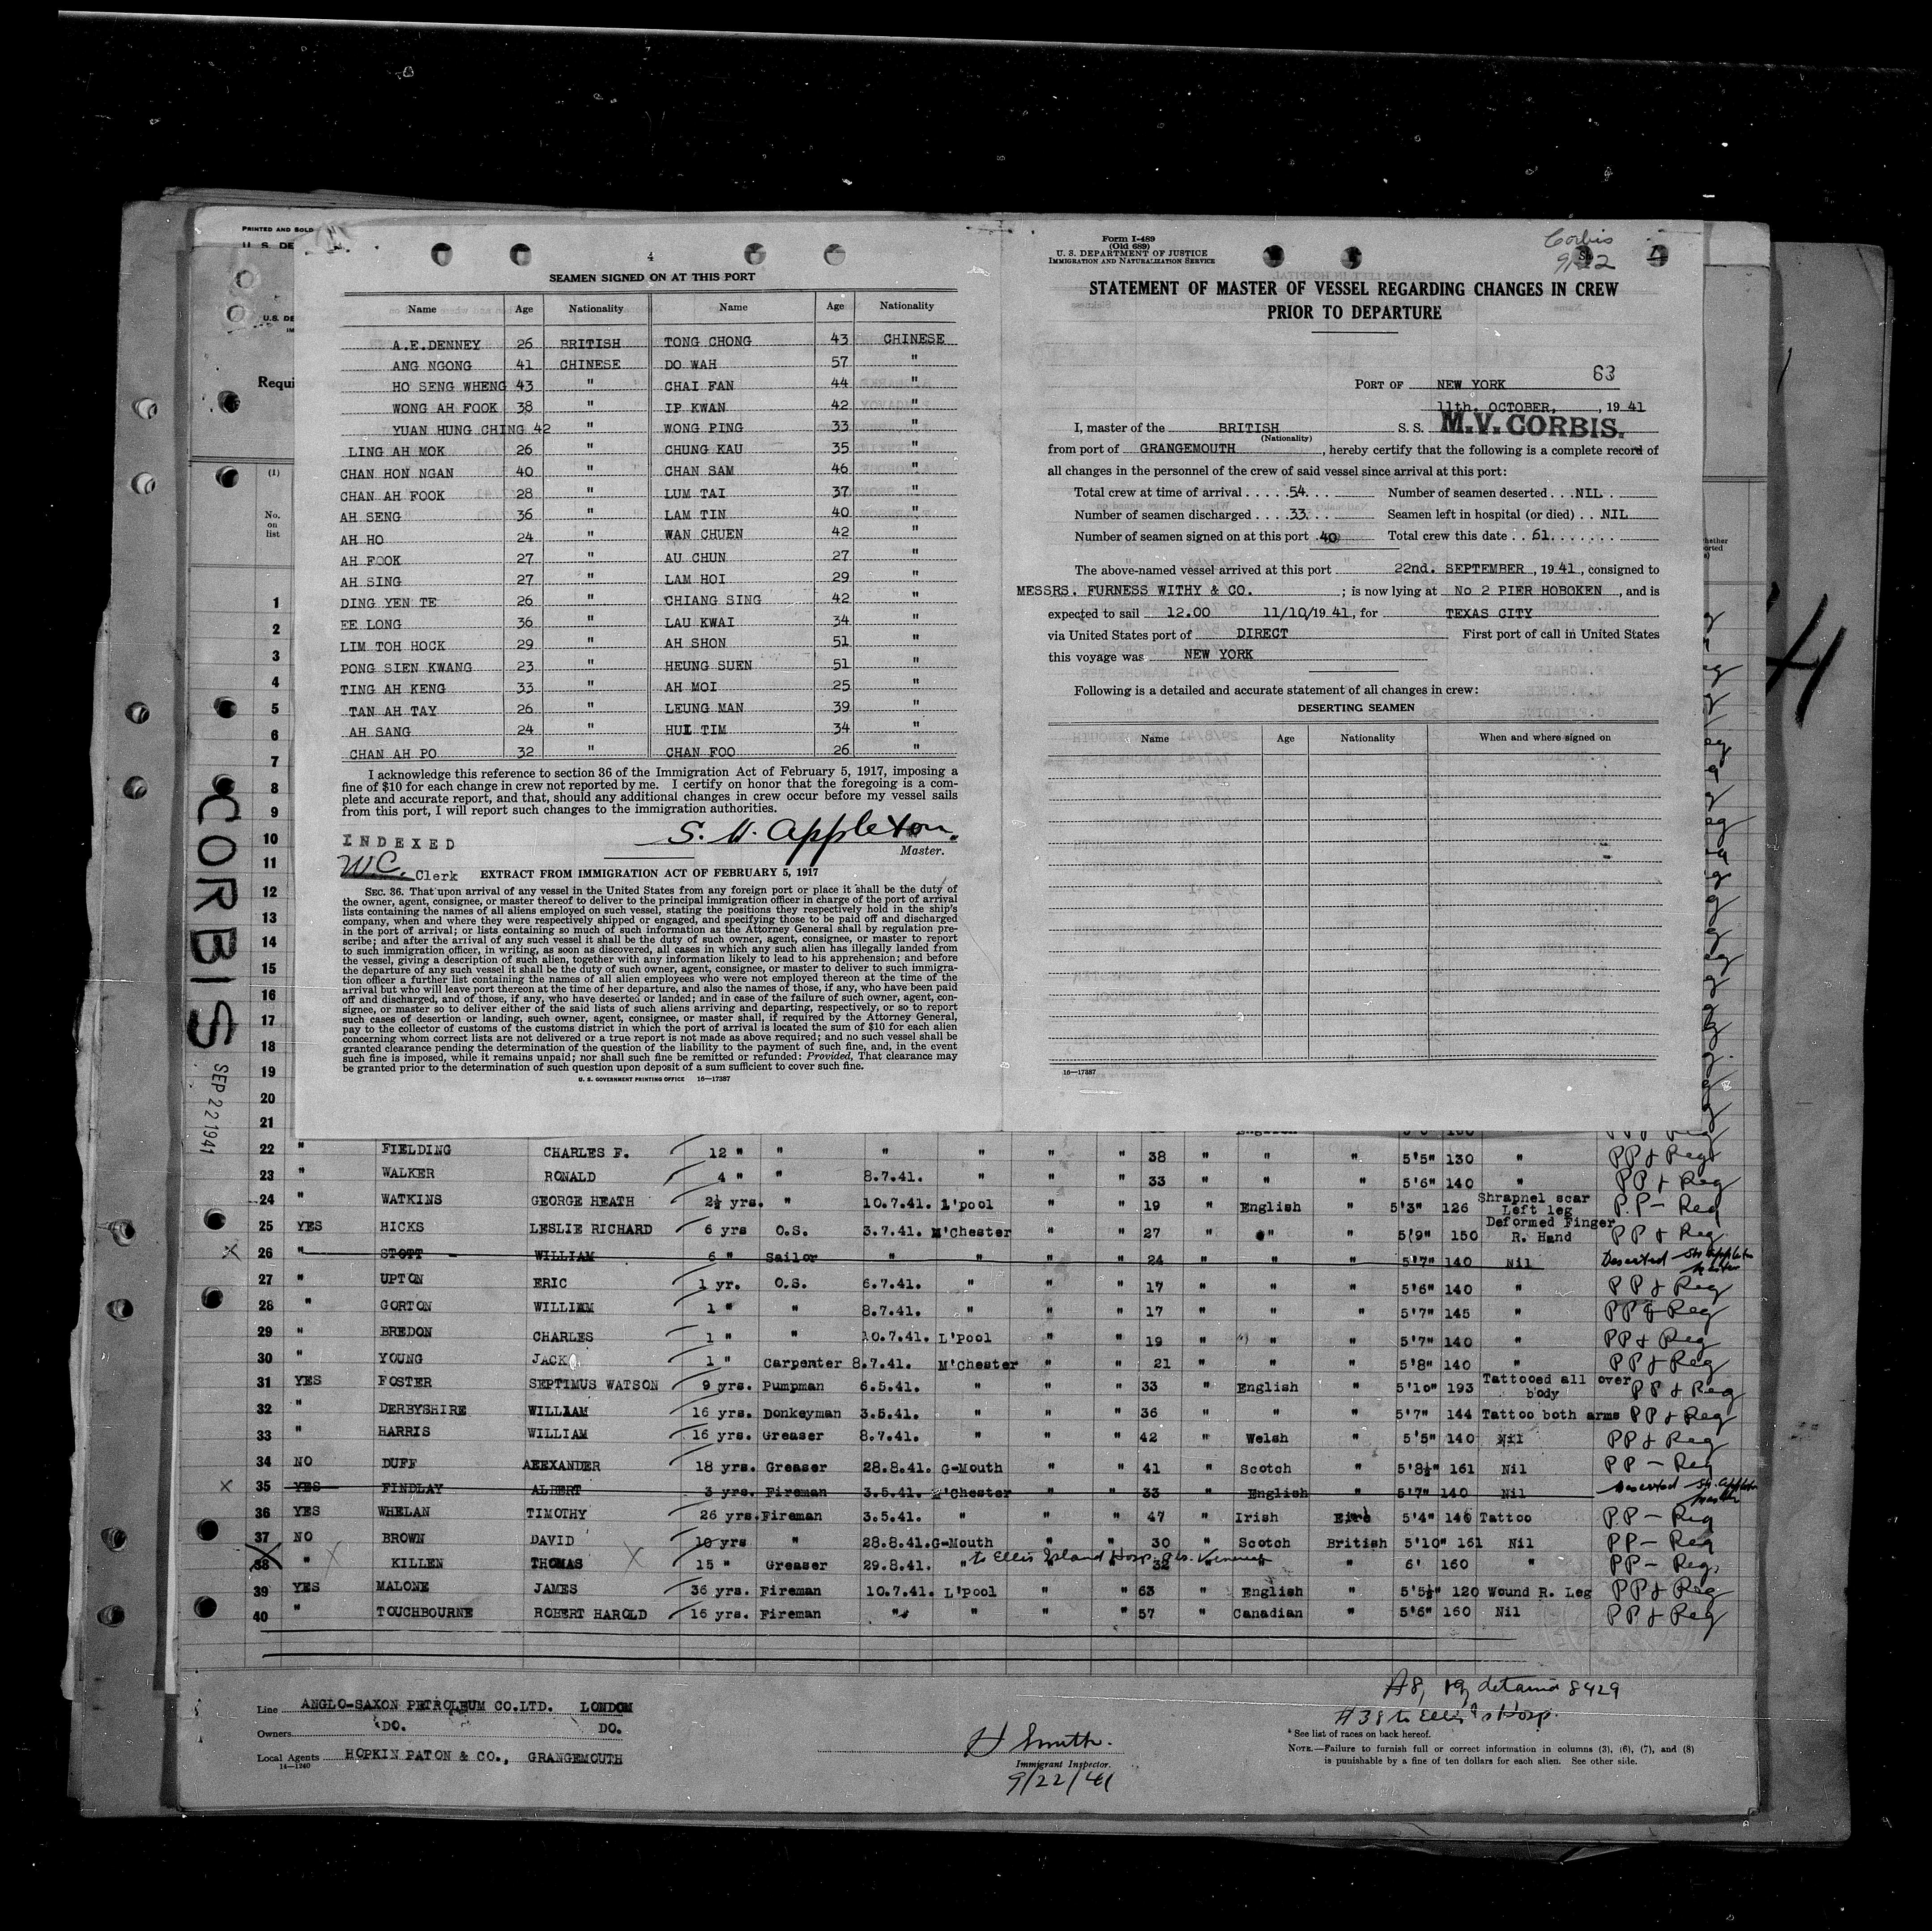 PRINTED AND SOLD
U. S. DE
U.S. DE
IM
Requi
(1)
No.
on
list
4
SEAMEN SIGNED ON AT THIS PORT
Name Age Nationality Name Age Nationality
A.E.DENNEY 26 BRITISH TONG CHONG 43 CHINESE
ANG NGONG 41 CHINESE DO WAH 57 "
HO SENG WHENG 43 " CHAI FAN 44 "
WONG AH FOOK 38 " IP KWAN 42 "
YUAN HUNG CHING 42 " WONG PING 33 "
LING AH MOK 26 " CHUNG KAU 35 "
CHAN HON NGAN 40 " CHAN SAM 46 "
CHAN AH FOOK 28 " LUM TAI 37 "
AH SENG 36 " LAM TIN 40 "
AH HO 24 " WAN CHUEN 42 "
AH FOOK 27 " AU CHUN 27 "
AH SING 27 " LAM HOI 29 "
DING YEN TE 26 " CHIANG SING 42 "
EE LONG 36 " LAU KWAI 34 "
LIM TOH HOCK 29 " AH SHON 51 "
PONG SIEN KWANG 23 " HEUNG SUEN 51 "
TING AH KENG 33 " AH MOI 25 "
TAN AH TAY 26 " LEUNG MAN 39 "
AH SANG 24 " HUI TIM 34 "
CHAN AH PO 32 " CHAN FOO 26 "
I acknowledge this reference to section 36 of the Immigration Act of February 5, 1917, imposing a
fine of $10 for each change in crew not reported by me. I certify on honor that the foregoing is a com-
plete and accurate report, and that, should any additional changes in crew occur before my vessel sails
from this port, I will report such changes to the immigration authorities.
S. H. Appleton.
Master.
INDEXED
W.C. Clerk
EXTRACT FROM IMMIGRATION ACT OF FEBRUARY 5, 1917
SEC. 36. That upon arrival of any vessel in the United States from any foreign port or place it shall be the duty of
the owner, agent, consignee, or master thereof to deliver to the principal immigration officer in charge of the port of arrival
lists containing the names of all aliens employed on such vessel, stating the positions they respectively hold in the ship's
company, when and where they were respectively shipped or engaged, and specifying those to be paid off and discharged
in the port of arrival; or lists containing so much of such information as the Attorney General shall by regulation pre-
scribe; and after the arrival of any such vessel it shall be the duty of such owner, agent, consignee, or master to report
to such immigration officer, in writing, as soon as discovered, all cases in which any such alien has illegally landed from
the vessel, giving a description of such alien, together with any information likely to lead to his apprehension; and before
the departure of any such vessel it shall be the duty of such owner, agent, consignee, or master to deliver to such immigra-
tion officer a further list containing the names of all alien employees who were not employed thereon at the time of the
arrival but who will leave port thereon at the time of her departure, and also the names of those, if any, who have been paid
off and discharged, and of those, if any, who have deserted or landed; and in case of the failure of such owner, agent, con-
signee, or master so to deliver either of the said lists of such aliens arriving and departing, respectively, or so to report
such cases of desertion or landing, such owner, agent, consignee, or master shall, if required by the Attorney General,
pay to the collector of customs of the customs district in which the port of arrival is located the sum of $10 for each alien
concerning whom correct lists are not delivered or a true report is not made as above required; and no such vessel shall be
granted clearance pending the determination of the question of the liability to the payment of such fine, and, in the event
such fine is imposed, while it remains unpaid; nor shall such fine be remitted or refunded: Provided, That clearance may
be granted prior to the determination of such question upon deposit of a sum sufficient to cover such fine.
U. S. GOVERNMENT PRINTING OFFICE 16—17387
Form I-489
(Old 689)
U. S. DEPARTMENT OF JUSTICE
IMMIGRATION AND NATURALIZATION SERVICE
Corbis
9/22
STATEMENT OF MASTER OF VESSEL REGARDING CHANGES IN CREW
PRIOR TO DEPARTURE
63
PORT OF NEW YORK
11th. OCTOBER, , 1941
I, master of the BRITISH S. S. M.V. CORBIS.
(Nationality)
from port of GRANGEMOUTH , hereby certify that the following is a complete record of
all changes in the personnel of the crew of said vessel since arrival at this port:
Total crew at time of arrival 54. Number of seamen deserted NIL
Number of seamen discharged 33. Seamen left in hospital (or died) NIL
Number of seamen signed on at this port 40 Total crew this date 61
The above-named vessel arrived at this port 22nd. SEPTEMBER , 1941 , consigned to
MESSRS. FURNESS WITHY & CO. ; is now lying at No 2 PIER HOBOKEN , and is
expected to sail 12.00 11/10/1941, for TEXAS CITY
via United States port of DIRECT First port of call in United States
this voyage was NEW YORK
Following is a detailed and accurate statement of all changes in crew:
DESERTING SEAMEN
Name Age Nationality When and where signed on
16—17387
CORBIS
SEP 22 1941
1
2
3
4
5
6
7
8
9
10
11
12
13
14
15
16
17
18
19
20
21
22 " FIELDING CHARLES F. 12 " " " " " " 38 " " " 5'5" 130 " PP & Reg
23 " WALKER RONALD 4 " " 8.7.41. " " " 33 " " " 5'6" 140 " PP & Reg
24 " WATKINS GEORGE HEATH 2½ yrs. " 10.7.41. L'pool " " 19 " English " 5'3" 126 Shrapnel scar Left leg P.P — Reg
25 YES HICKS LESLIE RICHARD 6 yrs O.S. 3.7.41. M'Chester " " 27 " " " 5'9" 150 Deformed Finger R. Hand PP & Reg
26 " STOTT WILLIAM 6 " Sailor " " " " 24 " " " 5'7" 140 Nil Deserted SH Appleton Master
27 " UPTON ERIC 1 yr. O.S. 6.7.41. " " " 17 " " " 5'6" 140 " PP & Reg
28 " GORTON WILLIAM 1 " " 8.7.41. " " " 17 " " " 5'7" 145 " PP & Reg
29 " BREDON CHARLES 1 " " 10.7.41. L'Pool " " 19 " " " 5'7" 140 " PP & Reg
30 " YOUNG JACK 1 " Carpenter 8.7.41. M'Chester " " 21 " " " 5'8" 140 " PP & Reg
31 YES FOSTER SEPTIMUS WATSON 9 yrs. Pumpman 6.5.41. " " " 33 " English " 5'10" 193 Tattooed all over body PP & Reg
32 " DERBYSHIRE WILLIAM 16 yrs. Donkeyman 3.5.41. " " " 36 " " " 5'7" 144 Tattoo both arms PP & Reg
33 " HARRIS WILLIAM 16 yrs. Greaser 8.7.41. " " " 42 " Welsh " 5'5" 140 Nil PP & Reg
34 NO DUFF ALEXANDER 18 yrs. Greaser 28.8.41. G-Mouth " " 41 " Scotch " 5'8½" 161 Nil PP — Reg
35 YES FINDLAY ALBERT 3 yrs. Fireman 3.5.41. M'Chester " " 33 " English " 5'7" 140 Nil Deserted SH. Appleton Master
36 YES WHELAN TIMOTHY 26 yrs. Fireman 3.5.41. " " " 47 " Irish Eire 5'4" 146 Tattoo P.P — Reg
37 NO BROWN DAVID 10 yrs " 28.8.41. G-Mouth " " 30 " Scotch British 5'10" 161 Nil PP — Reg
38 " KILLEN THOMAS 15 " Greaser 29.8.41. " to Ellis Island Hosp. 32 " 6' 160 " PP — Reg.
39 YES MALONE JAMES 36 yrs. Fireman 10.7.41. L'pool " " 63 " English " 5'5½" 120 Wound R. Leg PP & Reg
40 " TOUCHBOURNE ROBERT HAROLD 16 yrs. Fireman " " " " 57 " Canadian " 5'6" 160 Nil PP & Reg
Line ANGLO-SAXON PETROLEUM CO.LTD. LONDON
Owners DO. DO.
Local Agents HOPKIN PATON & CO., GRANGEMOUTH
14—1240
H Smith.
Immigrant Inspector.
9/22/41
#38 to Ellis Is Hosp.
* See list of races on back hereof.
NOTE.—Failure to furnish full or correct information in columns (3), (6), (7), and (8)
is punishable by a fine of ten dollars for each alien. See other side.